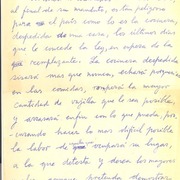 al final de su mandato, es tan peligroso
para el país como lo es la cocinera,
despedida de una casa, los últimos días
que le concede la ley, en espera de la
reemplazante. La cocinera despedida
sisará mas que nunca, echará
en las comidas, romperá la mayor
cantidad de vajilla que le sea posible,
y arrasará enfin con lo que pueda, pro-
curando hacer la mas difícil posible
la labor de ocupará su lugar,
a la que detesta y desea los mayores